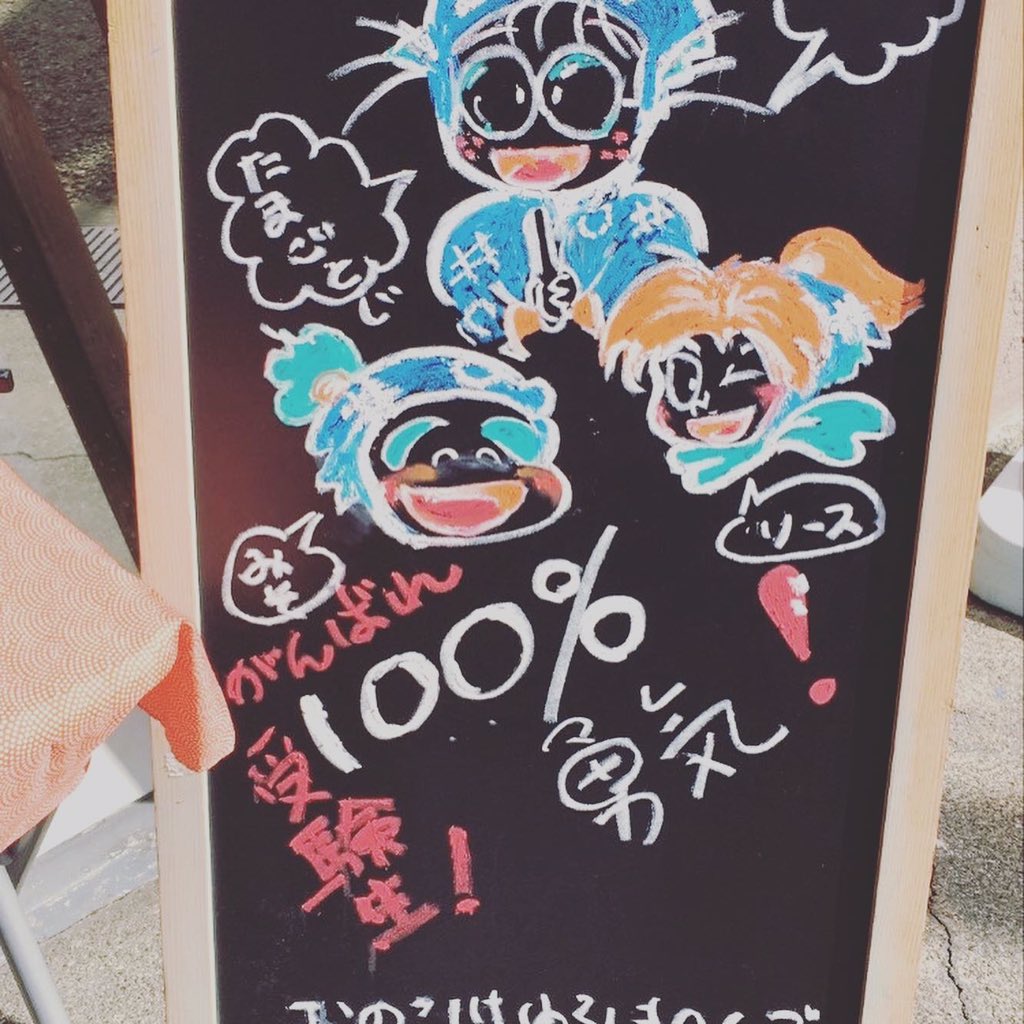 たまごとじ
みそ
ソース
がんばれ
受験生!
100%
勇気!